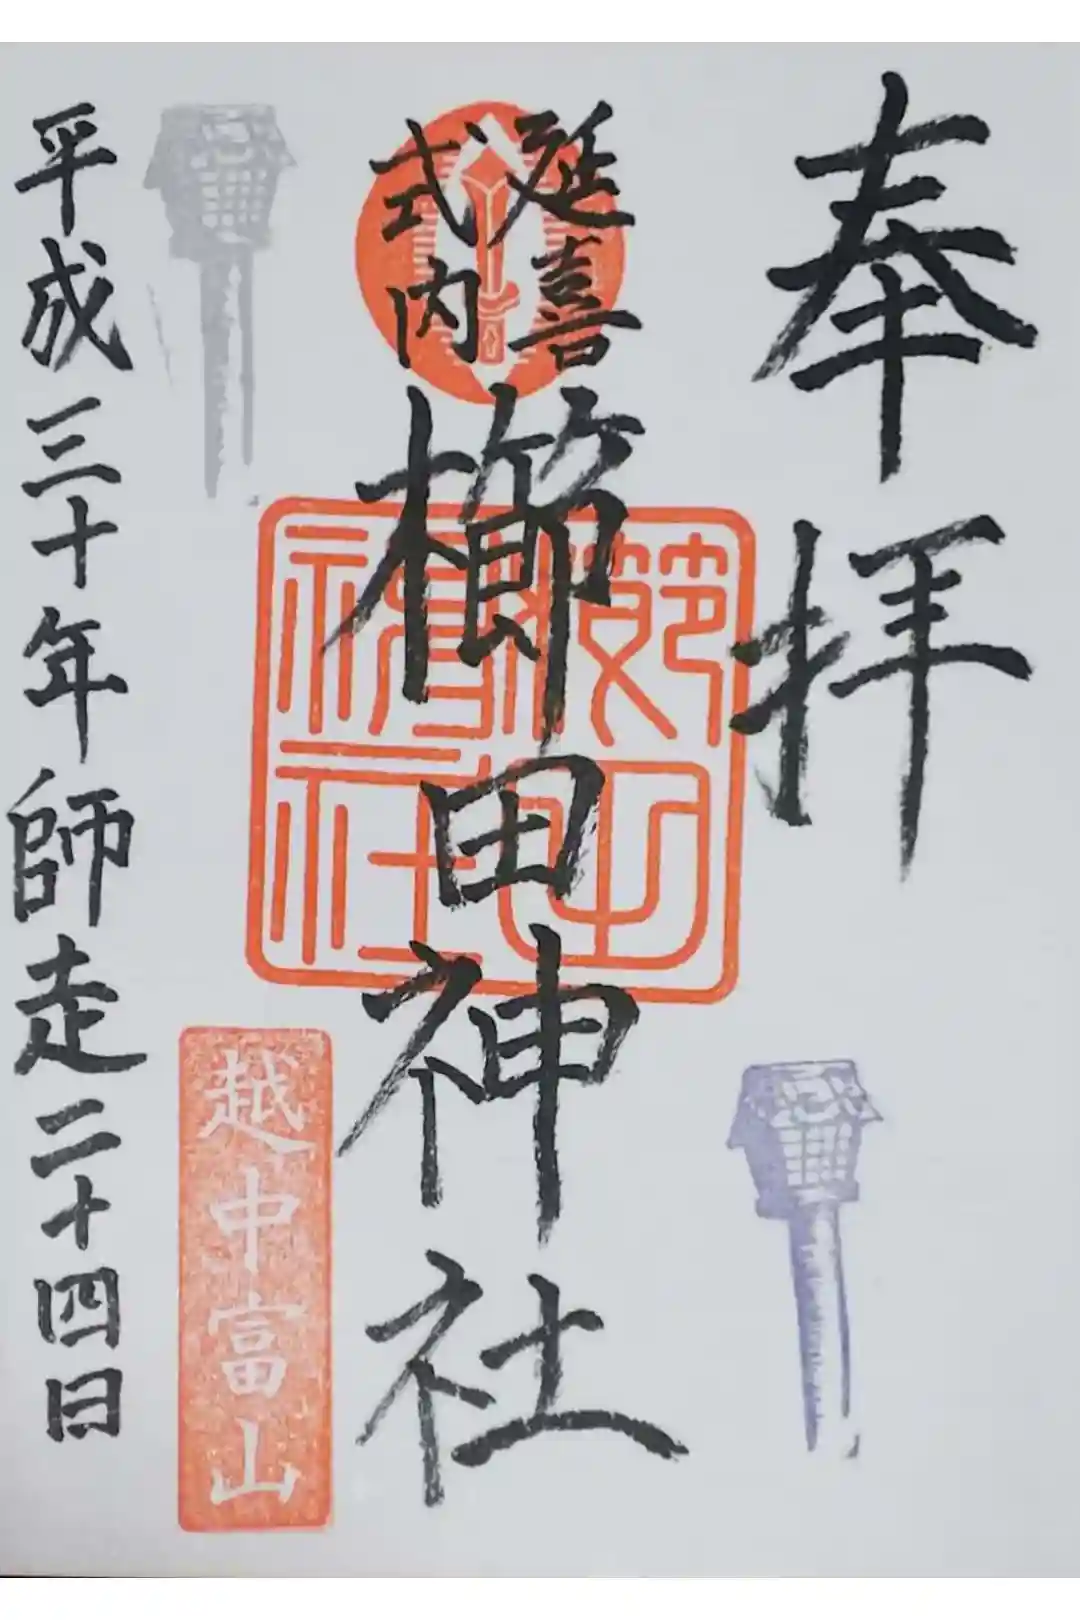 奉拝
延喜
式内
櫛田神社
櫛田
神社
越中富山
平成三十年師走二十四日